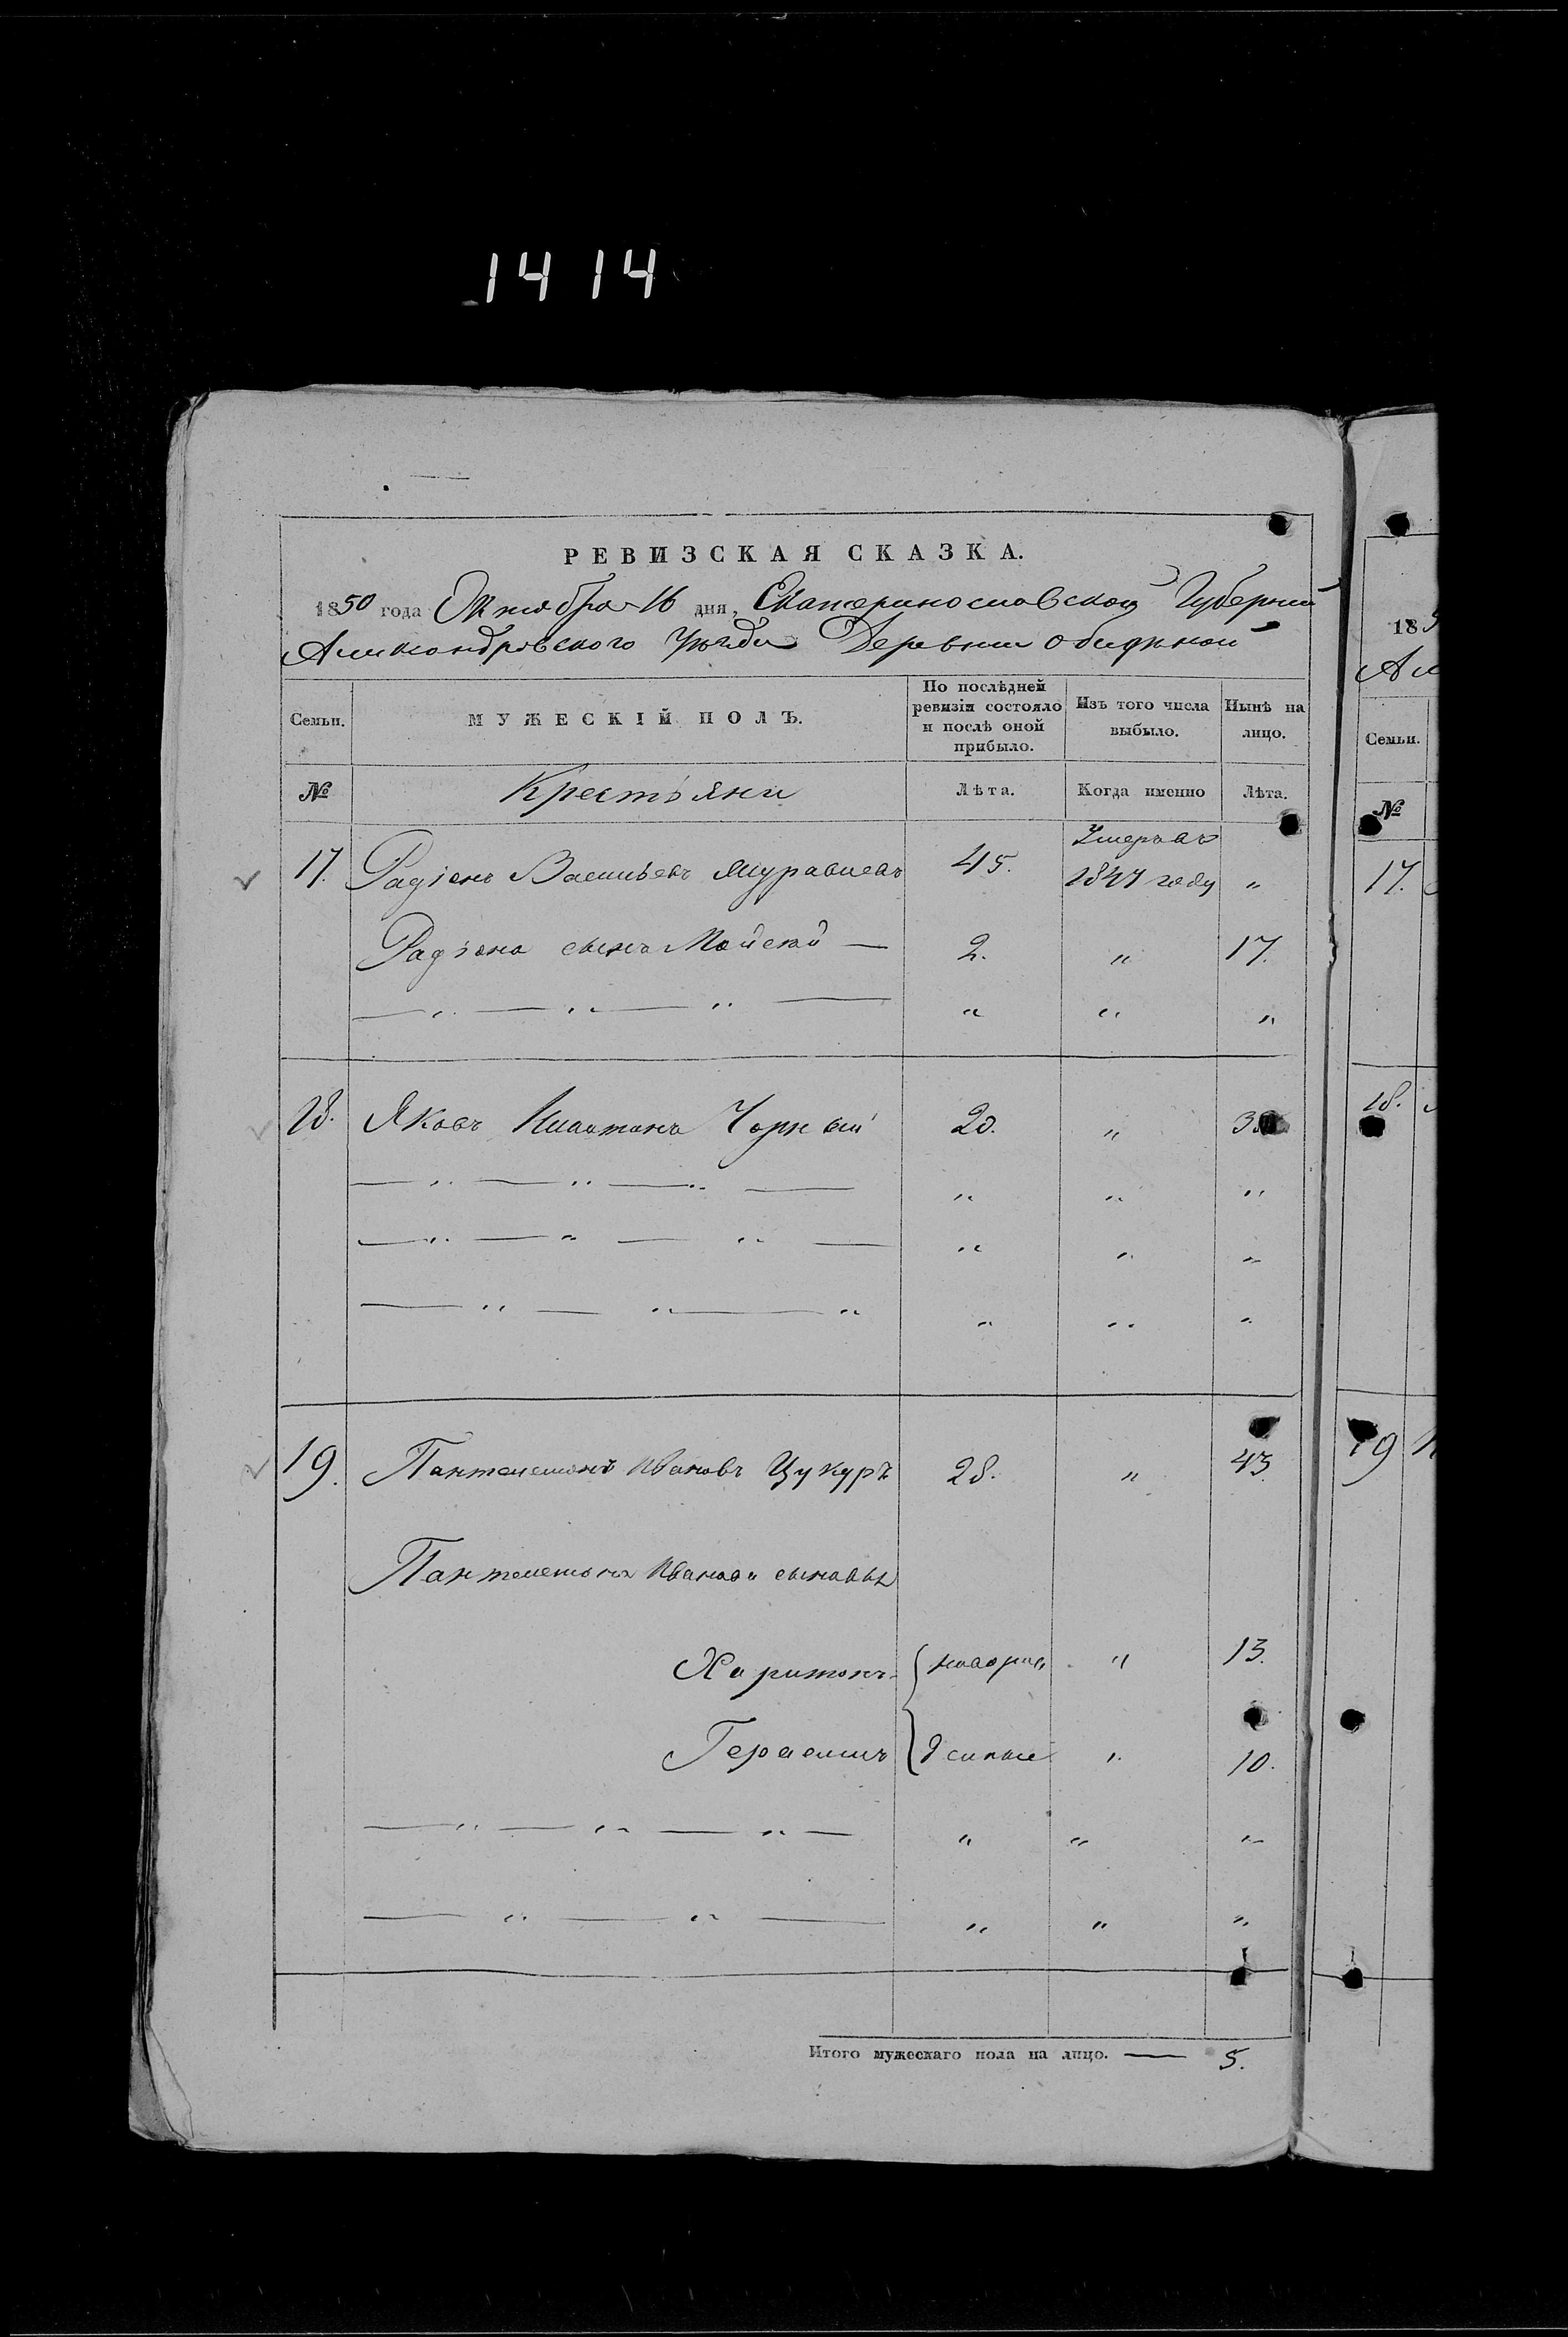 1414
РЕВИЗСКАЯ СКАЗКА.
1850 года Октября 16 дня, Екатеринославской Губернии
Александровского Уезда Деревни Обидной
Семьи. МУЖЕСКІЙ ПОЛЪ. По послѣдней ревизіи состояло и послѣ оной прибыло. Изъ того числа выбыло. Нынѣ на лицо.
№ Крестьяни Лѣта. Когда именно Лѣта.
17. Радіонъ Васильевъ Муравиевъ 45. Умеръ въ 1847 году "
Радіона сынъ Мойсей — 2. " 17.
" " "
18. Яковъ Чорный 20. " 35
" " "
" " "
" " "
19. Пантелемонъ Ивановъ Цукуръ 28. " 43
Пантелемона Иванова сыновья
Харитонъ новорож " 13.
Герасимъ денные " 10.
" " "
" " "
Итого мужескаго пола на лицо. — 5.
185
Ал
Семьи.
№
17.
18.
19